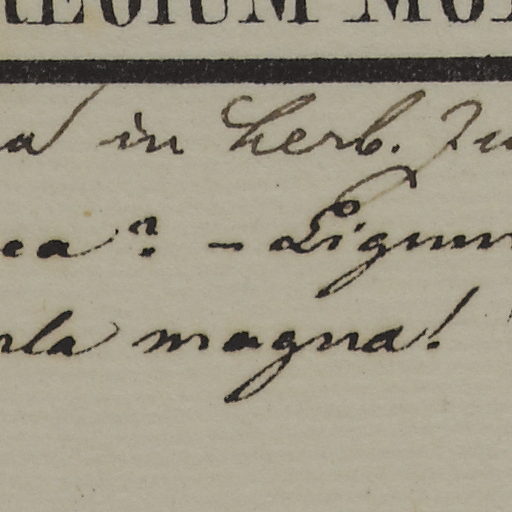 REGIUM MO
a in herb. Zu
ea? - Lignum
rla magna!